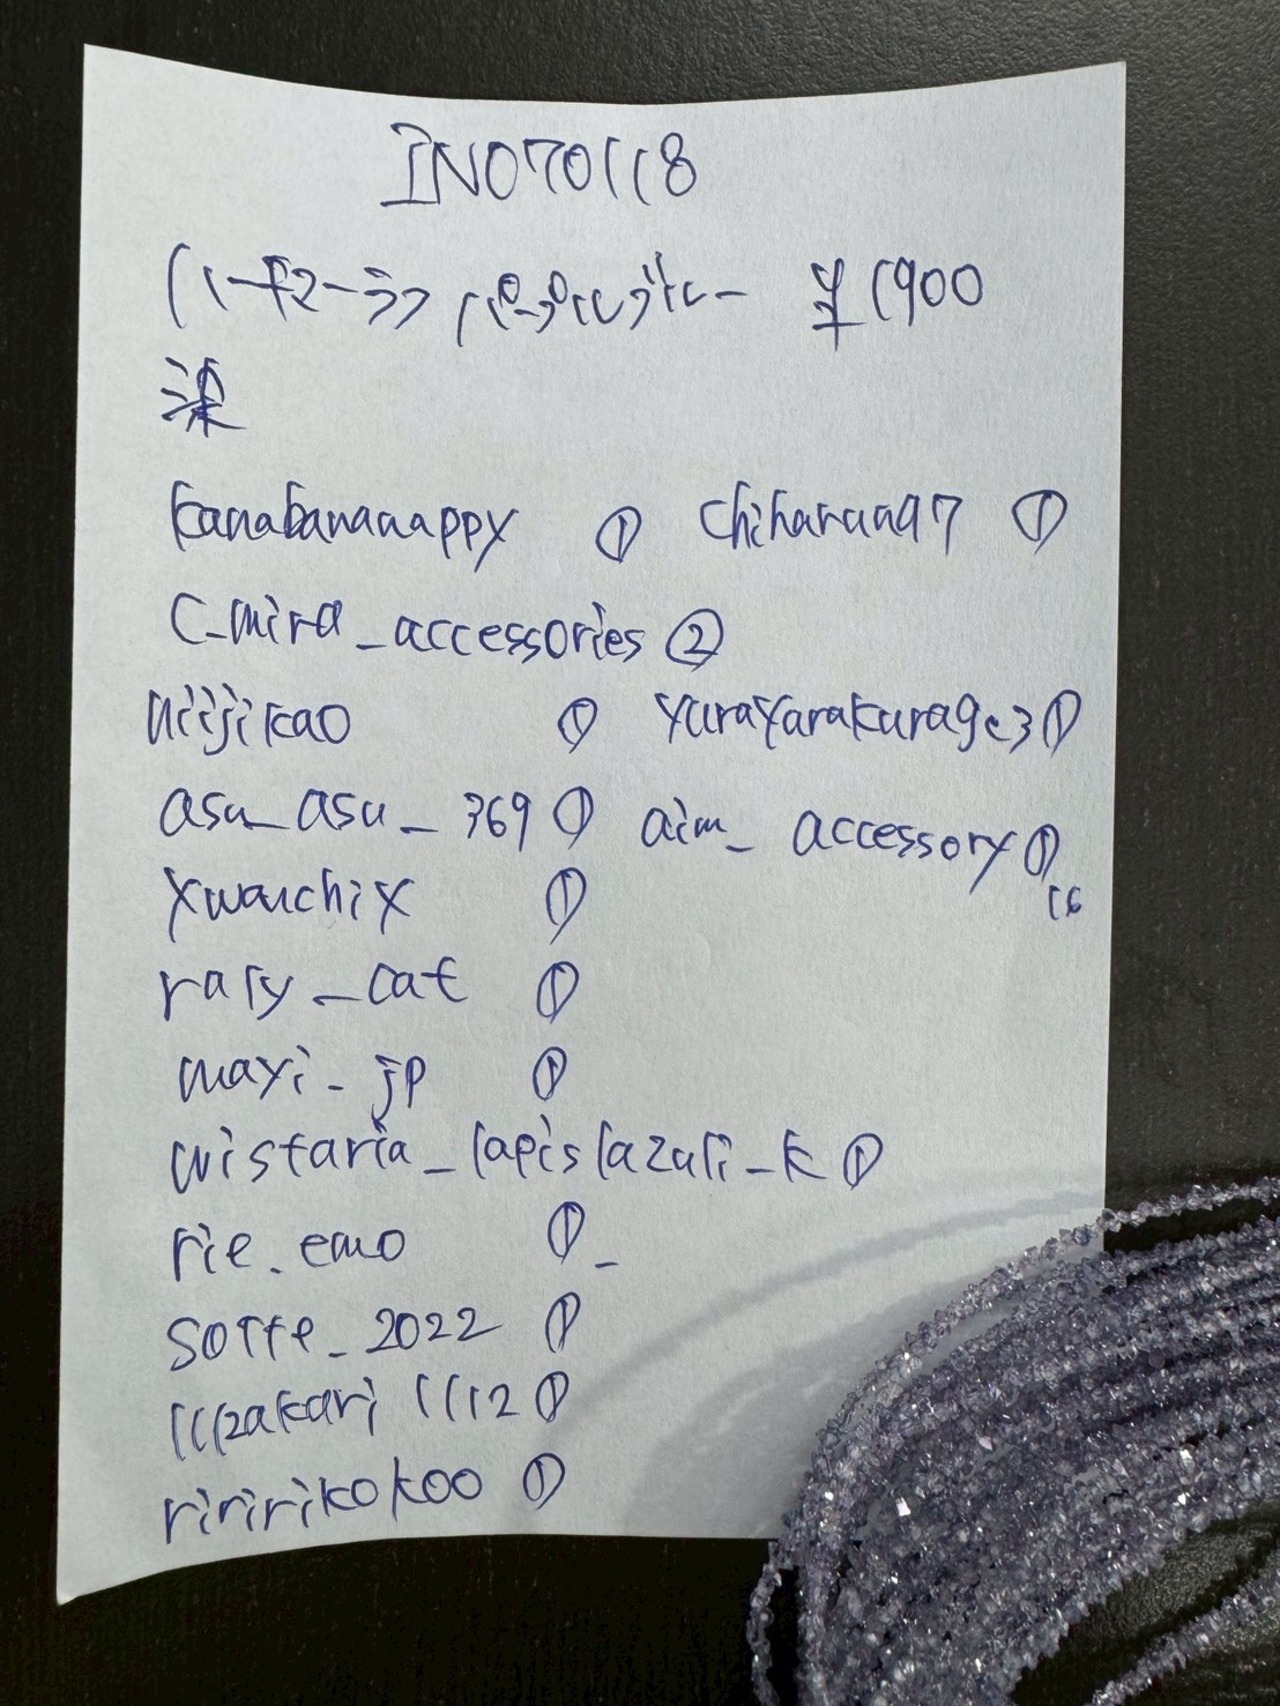 IN070118
ハーキマーララ パープルブルー ¥1900
染
kanabananappy ① chiharuna97 ①
c_mira_accessories ②
niijikao ① yurayurakurage3 ①
asu_asu_369 ① aim_accessory ①
xwauchix ① 16
raly_cat ①
mayi_jp ①
wistaria_lapislazuli_k ①
rie.emo ①_
sorte_2022 ①
111zakari1112 ①
riririkokoo ①